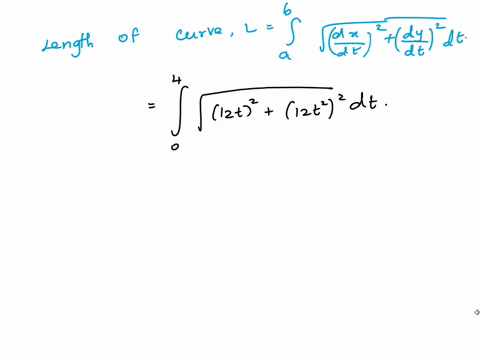 Length of curve, L = ∫_a^b √((dx/dt)^2 + (dy/dt)^2) dt.
= ∫_0^4 √((12t)^2 + (12t^2)^2) dt.